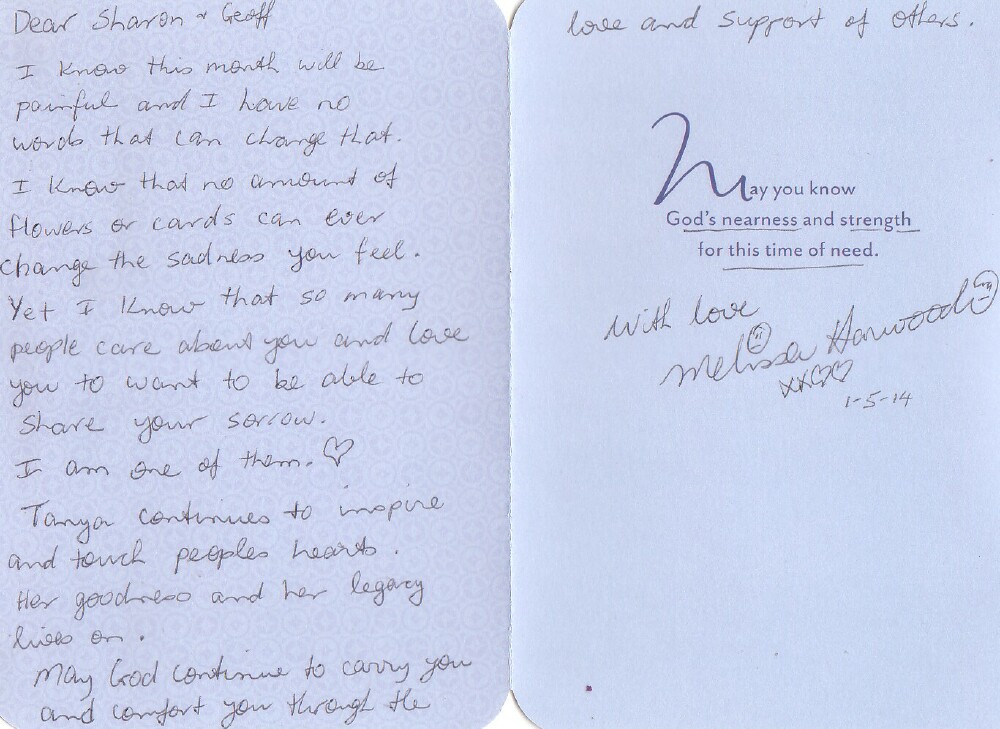 Dear Sharon & Geoff
I know this month will be
painful and I have no
words that can change that.
I know that no amount of
flowers or cards can ever
change the sadness you feel.
Yet I know that so many
people care about you and love
you to want to be able to
share your sorrow.
I am one of them. ♡
Tanya continues to inspire
and touch peoples hearts.
Her goodness and her legacy
lives on.
May God continue to carry you
and comfort you through the
love and support of others.
May you know
God's nearness and strength
for this time of need.
With love
Melissa Harwood
xx♡♡
1-5-14